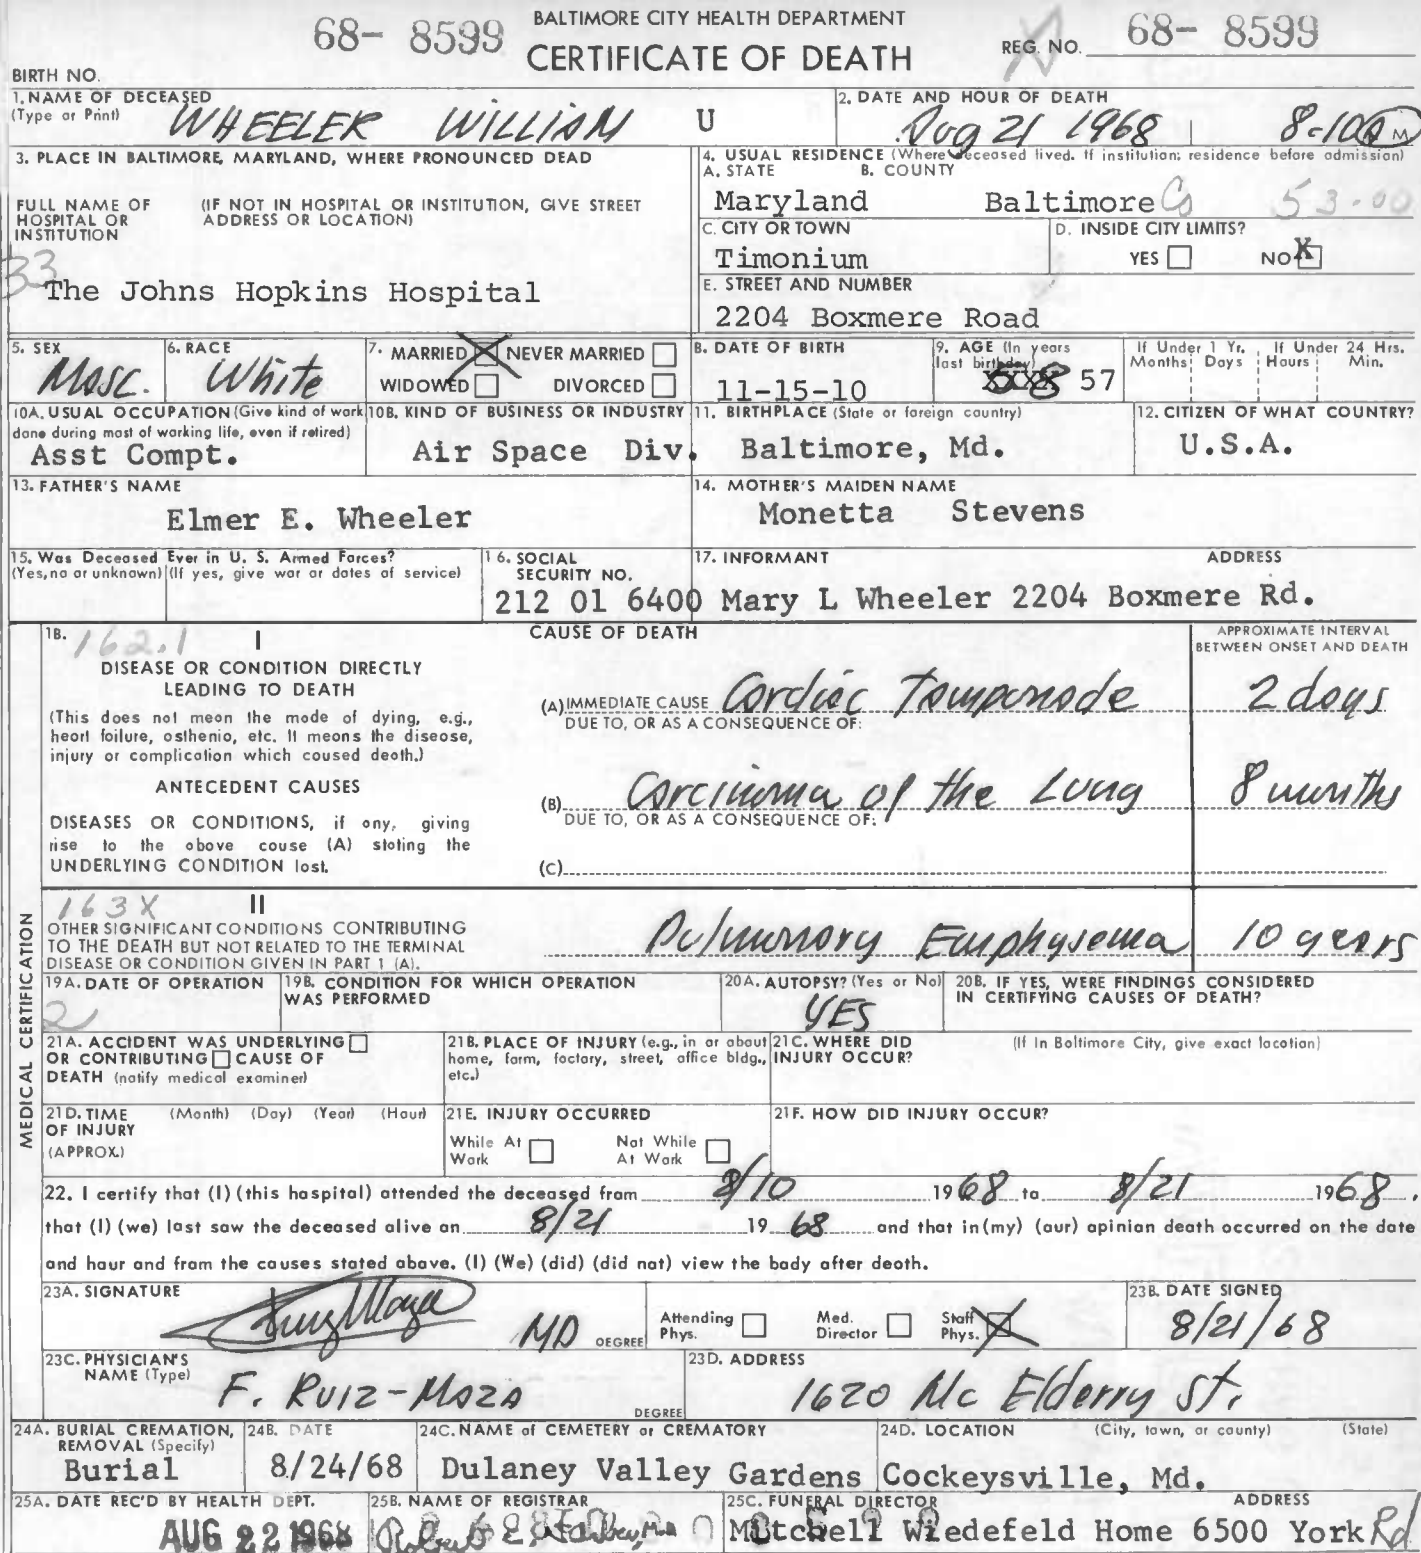 68- 8599 BALTIMORE CITY HEALTH DEPARTMENT REG. NO. 68- 8599
CERTIFICATE OF DEATH
BIRTH NO.
1. NAME OF DECEASED (Type or Print) WHEELER WILLIAM U
2. DATE AND HOUR OF DEATH Aug 21 1968 8-10 A M
3. PLACE IN BALTIMORE, MARYLAND, WHERE PRONOUNCED DEAD
FULL NAME OF HOSPITAL OR INSTITUTION (IF NOT IN HOSPITAL OR INSTITUTION, GIVE STREET ADDRESS OR LOCATION)
33
The Johns Hopkins Hospital
4. USUAL RESIDENCE (Where deceased lived. If institution: residence before admission)
A. STATE B. COUNTY
Maryland Baltimore Co 53-00
C. CITY OR TOWN D. INSIDE CITY LIMITS?
Timonium YES NO X
E. STREET AND NUMBER
2204 Boxmere Road
5. SEX Masc.
6. RACE White
7. MARRIED X NEVER MARRIED
WIDOWED DIVORCED
8. DATE OF BIRTH 11-15-10
9. AGE (In years last birthday) 57
If Under 1 Yr. Months Days If Under 24 Hrs. Hours Min.
10A. USUAL OCCUPATION (Give kind of work done during most of working life, even if retired)
Asst Compt.
10B. KIND OF BUSINESS OR INDUSTRY
Air Space Div.
11. BIRTHPLACE (State or foreign country)
Baltimore, Md.
12. CITIZEN OF WHAT COUNTRY?
U.S.A.
13. FATHER'S NAME
Elmer E. Wheeler
14. MOTHER'S MAIDEN NAME
Monetta Stevens
15. Was Deceased Ever in U. S. Armed Forces?
(Yes, no or unknown) (If yes, give war or dates of service)
16. SOCIAL SECURITY NO.
212 01 6400
17. INFORMANT ADDRESS
Mary L Wheeler 2204 Boxmere Rd.
MEDICAL CERTIFICATION
18. 162.1 I CAUSE OF DEATH APPROXIMATE INTERVAL BETWEEN ONSET AND DEATH
DISEASE OR CONDITION DIRECTLY LEADING TO DEATH
(This does not mean the mode of dying, e.g., heart failure, asthenia, etc. It means the disease, injury or complication which caused death.)
(A) IMMEDIATE CAUSE Cardiac Tamponade 2 days
DUE TO, OR AS A CONSEQUENCE OF:
ANTECEDENT CAUSES
DISEASES OR CONDITIONS, if any, giving rise to the above cause (A) stating the UNDERLYING CONDITION last.
(B) Carcinoma of the Lung 8 months
DUE TO, OR AS A CONSEQUENCE OF:
(C)
163X II
OTHER SIGNIFICANT CONDITIONS CONTRIBUTING TO THE DEATH BUT NOT RELATED TO THE TERMINAL DISEASE OR CONDITION GIVEN IN PART 1 (A).
Pulmonary Emphysema 10 years
19A. DATE OF OPERATION 2
19B. CONDITION FOR WHICH OPERATION WAS PERFORMED
20A. AUTOPSY? (Yes or No) YES
20B. IF YES, WERE FINDINGS CONSIDERED IN CERTIFYING CAUSES OF DEATH?
21A. ACCIDENT WAS UNDERLYING OR CONTRIBUTING CAUSE OF DEATH (notify medical examiner)
21B. PLACE OF INJURY (e.g., in or about home, farm, factory, street, office bldg., etc.)
21C. WHERE DID INJURY OCCUR? (If In Baltimore City, give exact location)
21D. TIME OF INJURY (APPROX.) (Month) (Day) (Year) (Hour)
21E. INJURY OCCURRED
While At Work Not While At Work
21F. HOW DID INJURY OCCUR?
22. I certify that (I) (this hospital) attended the deceased from 8/10 1968 to 8/21 1968,
that (I) (we) last saw the deceased alive on 8/21 19 68 and that in (my) (our) opinion death occurred on the date
and hour and from the causes stated above. (I) (We) (did) (did not) view the body after death.
23A. SIGNATURE MD DEGREE
Attending Phys. Med. Director Staff Phys. X
23B. DATE SIGNED
8/21/68
23C. PHYSICIAN'S NAME (Type)
F. RUIZ-MAZA DEGREE
23D. ADDRESS
1620 Mc Elderry St.
24A. BURIAL CREMATION, REMOVAL (Specify)
Burial
24B. DATE
8/24/68
24C. NAME of CEMETERY or CREMATORY
Dulaney Valley Gardens
24D. LOCATION (City, town, or county) (State)
Cockeysville, Md.
25A. DATE REC'D BY HEALTH DEPT.
AUG 22 1968
25B. NAME OF REGISTRAR
Robert E. Farber, M.D.
25C. FUNERAL DIRECTOR ADDRESS
Mitchell Wiedefeld Home 6500 York Rd